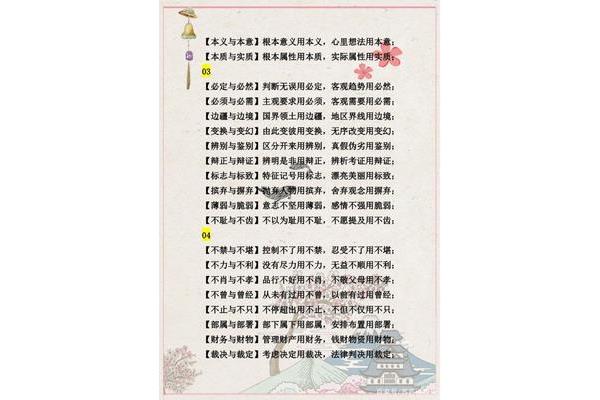 【本义与本意】根本意义用本义，心里想法用本意；
【本质与实质】根本属性用本质，实际属性用实质；
03
【必定与必然】判断无误用必定，客观趋势用必然；
【必须与必需】主观要求用必须，客观需要用必需；
【边疆与边境】国界领土用边疆，地区界线用边境；
【变换与变幻】由此变彼用变换，无序改变用变幻；
【辨别与鉴别】区分开来用辨别，真假伪劣用鉴别；
【辩正与辩证】辨明是非用辩正，辨析考证用辩证；
【标志与标致】特征记号用标志，漂亮美丽用标致；
【摈弃与摒弃】抛弃人物用摈弃，舍弃观念用摒弃；
【薄弱与脆弱】意志不坚用薄弱，感情不强用脆弱；
【不耻与不齿】不以为耻用不耻，不愿提及用不齿；
04
【不禁与不堪】控制不了用不禁，忍受不了用不堪；
【不力与不利】没有尽力用不力，无益不顺用不利；
【不肖与不孝】品行不好用不肖，不敬父母用不孝；
【不曾与曾经】从未有过用不曾，以前有过用曾经；
【不止与不只】不停超出用不止，不但不仅用不只；
【部属与部署】部下属下用部属，安排布置用部署；
【财务与财物】管理财产用财务，钱财物资用财物；
【裁决与裁定】考虑决定用裁决，法律判决用裁定；